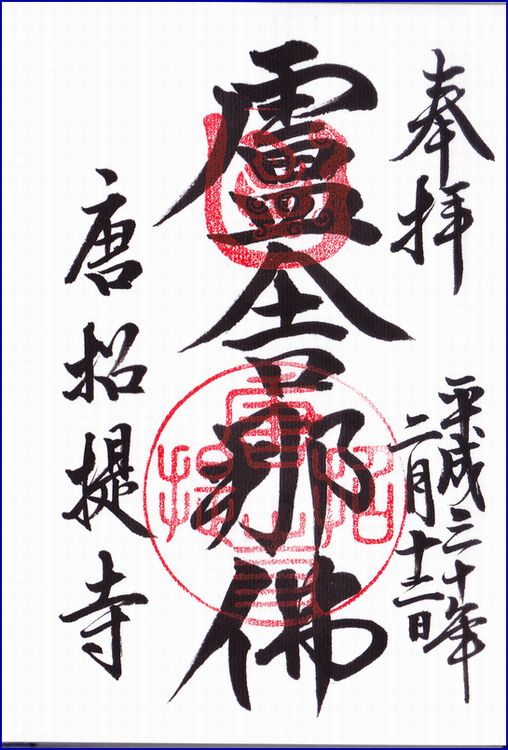 奉拝
平成三十年
二月十三日
盧舎那佛
唐招提寺